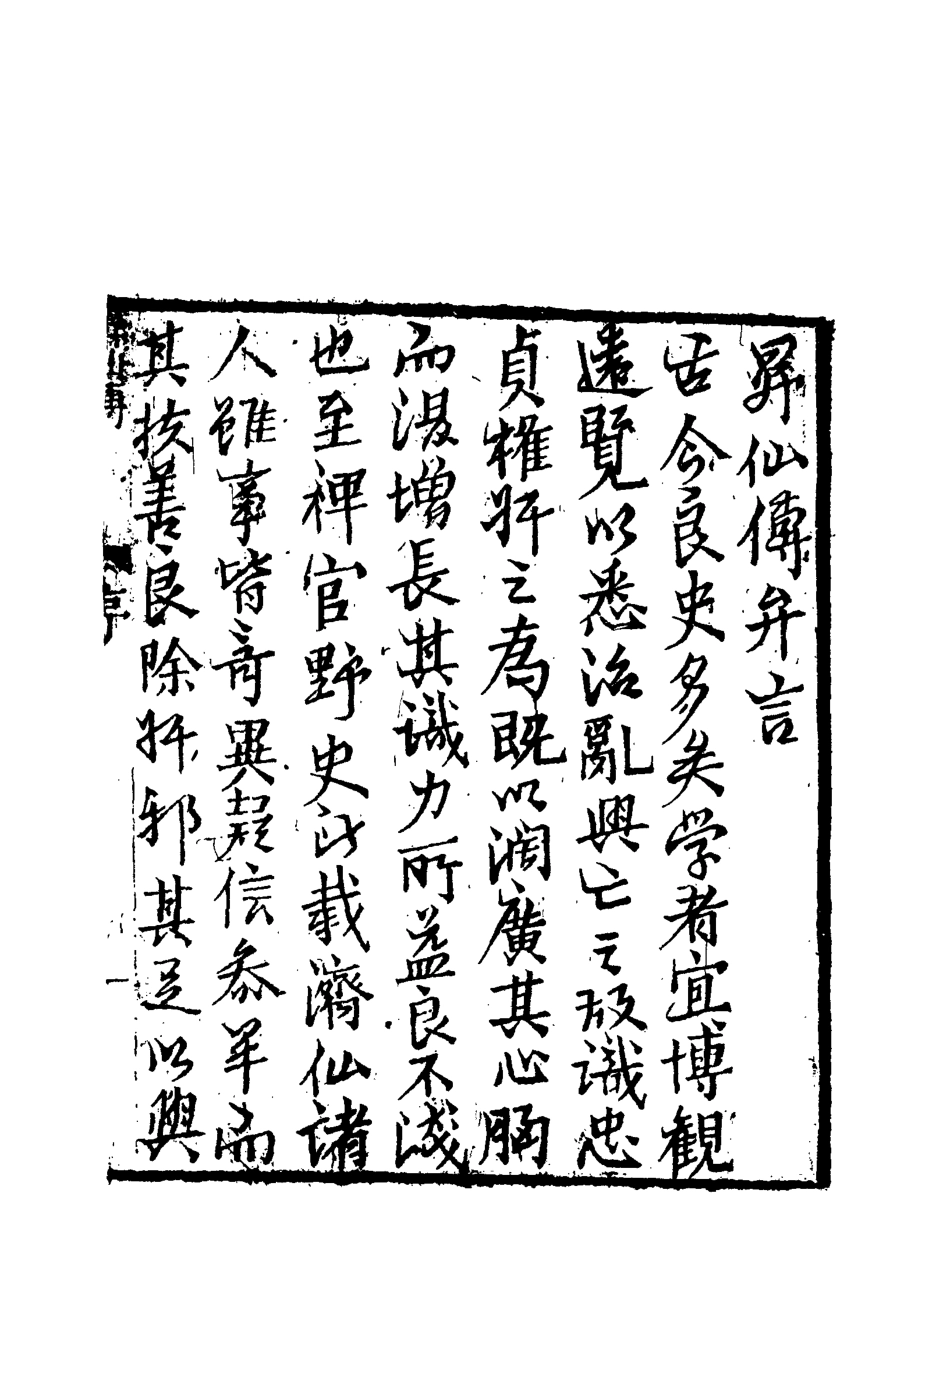 昇仙傳弁言
古今良史多矣学者宜博観
遠覽以悉治亂興亡之故識忠
貞權奸之為既以濶廣其心胸
而復增長其識力所益良不淺
也至裨官野史所載濟仙諸
人雖事皆奇異疑信叅半而
其扶善良除奸邪其足以興